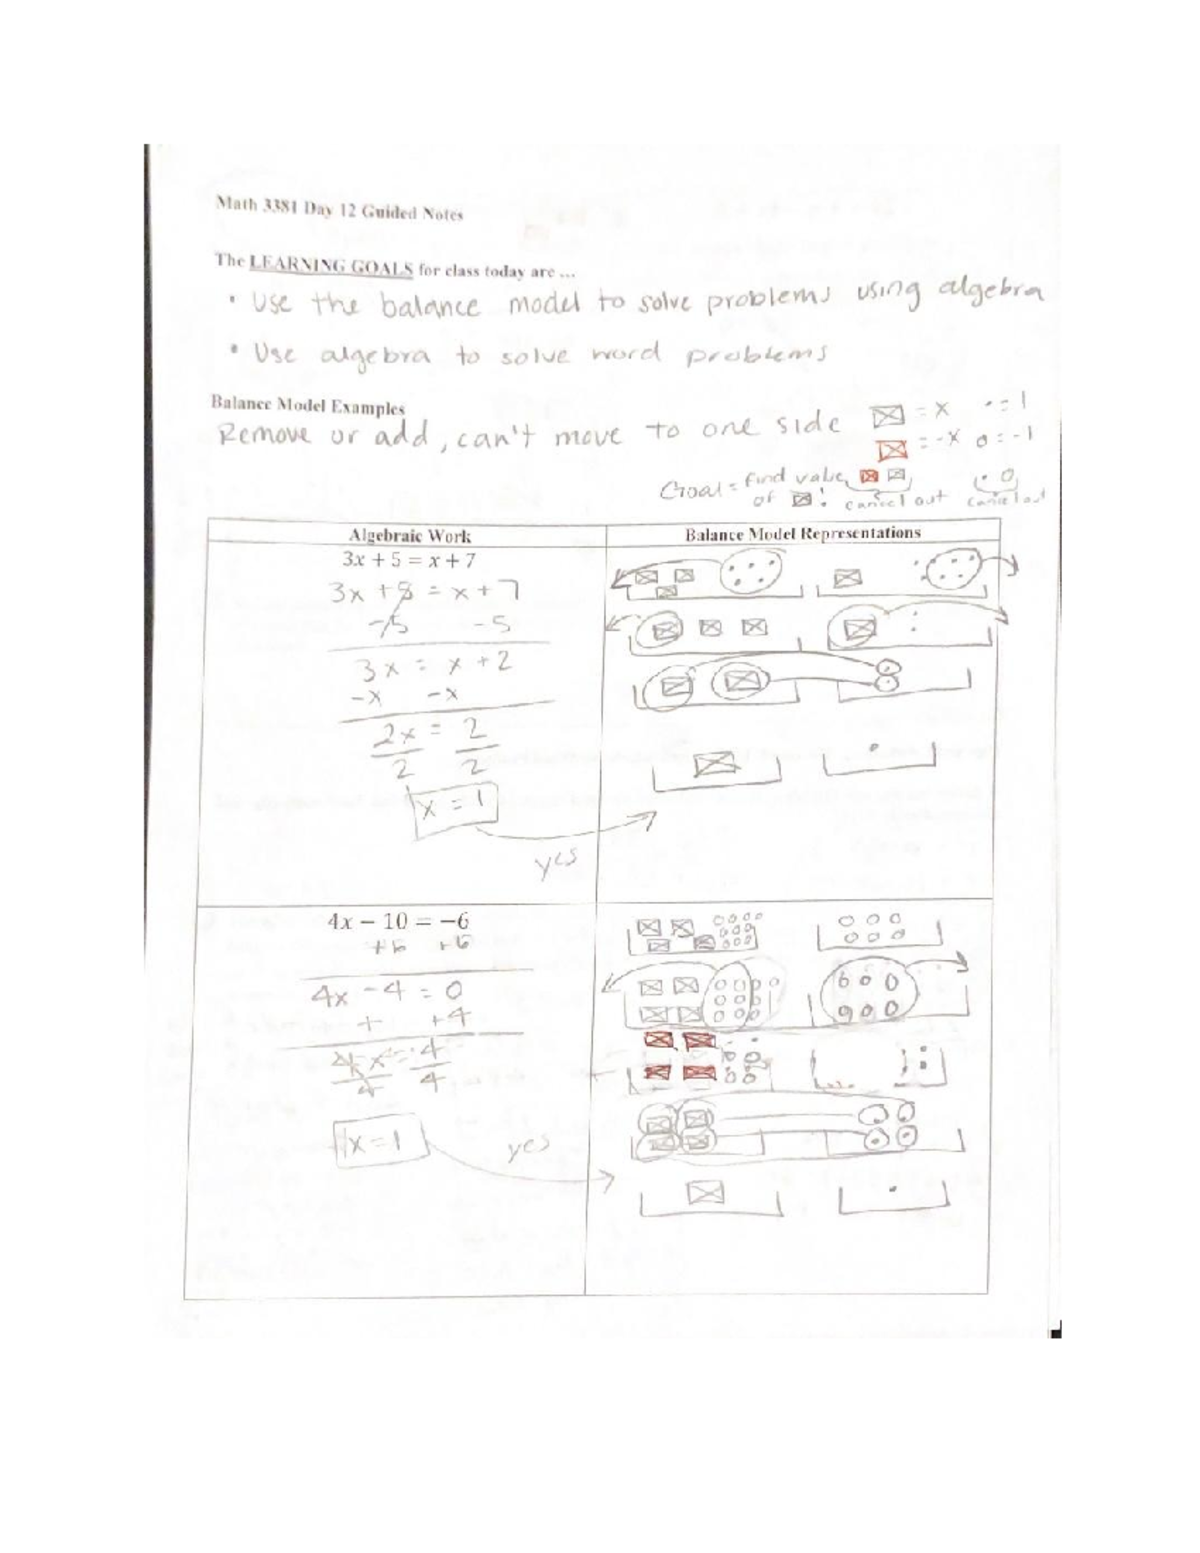 Math 3381 Day 12 Guided Notes
The LEARNING GOALS for class today are ...
• Use the balance model to solve problems using algebra
• Use algebra to solve word problems
Balance Model Examples
Remove or add, can't move to one side
= x · = 1
= -x o = -1
Goal = find value
of ! cancel out cancel out
Algebraic Work Balance Model Representations
3x + 5 = x + 7
3x + 5 = x + 7
-5 -5
3x = x + 2
-x -x
2x = 2
2 2
x = 1
yes
4x − 10 = −6
+6 +6
4x - 4 = 0
+ +4
4x = 4
4 4
x = 1
yes